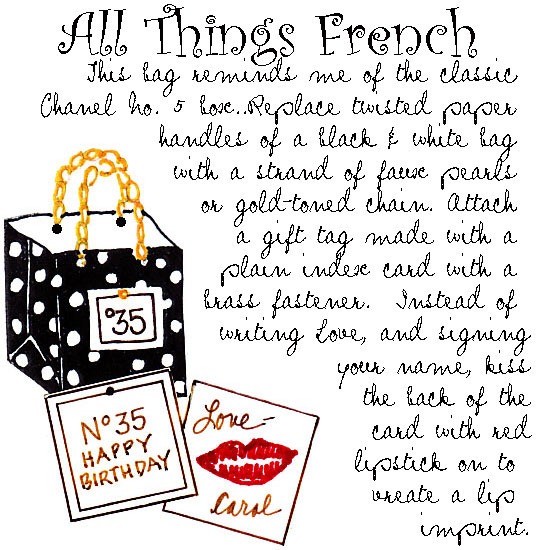 All Things French
This bag reminds me of the classic
Chanel No. 5 box...Replace twisted paper
handles of a black & white bag
with a strand of faux pearls
or gold-toned chain. Attach
a gift tag made with a
plain index card with a
brass fastener. Instead of
writing Love, and signing
your name, kiss
the back of the
card with red
lipstick on to
create a lip
imprint.
º35
Nº 35
HAPPY
BIRTHDAY
Love-
Carol